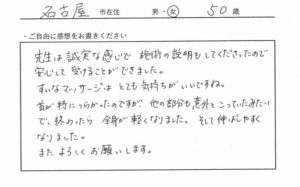 名古屋 市在住 男・女 50歳
・ご自由に感想をお書きください
先生は誠実な感じで 施術の説明もしてくださったので
安心して受けることができました。
すいなマッサージは とても気持ちがいいですね。
首が特につらかったのですが 他の部分も意外とこっていたみたい
で、終わったら 全身が軽くなりました。そして伸ばしやすく
なりました。
また よろしく お願いします。